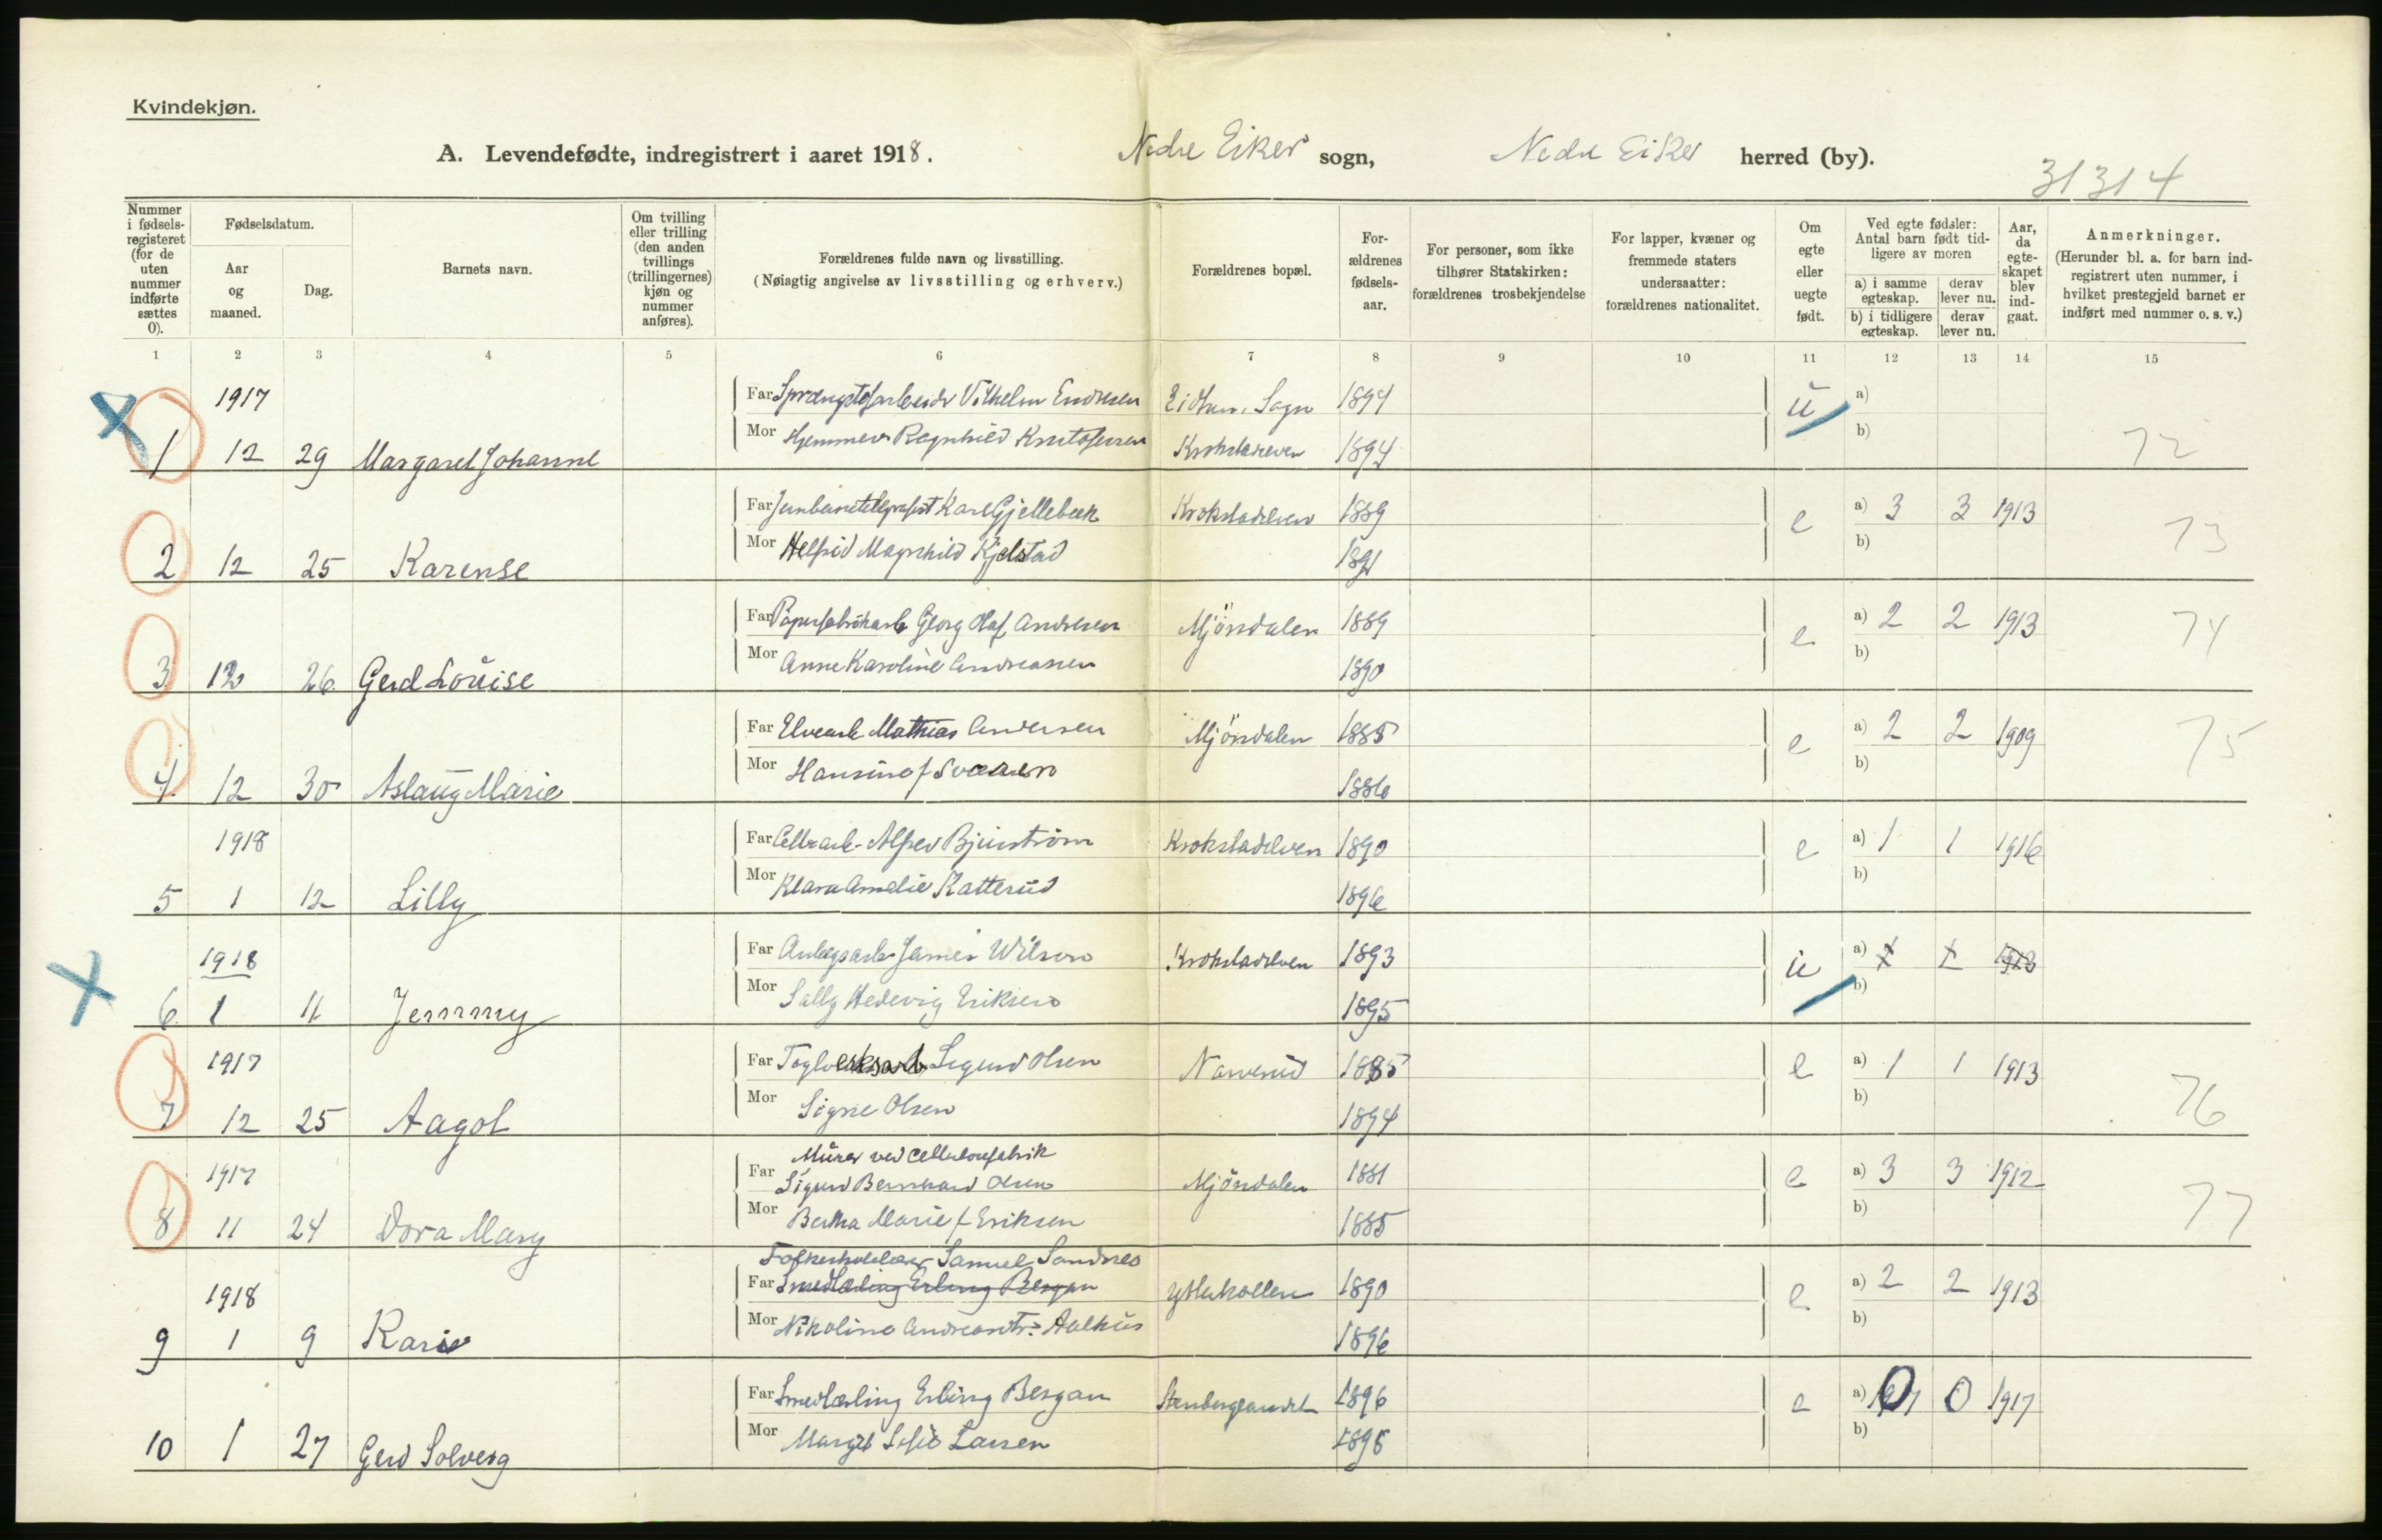 Kvindekjøn.
A. Levendefødte, indregistrert i aaret 1918. Nedre Eiker sogn, Nedre Eiker herred (by).
31314
Nummer i fødselsregisteret (for de uten nummer indførte sættes 0).
Fødselsdatum.
Aar og maaned.
Dag.
Barnets navn.
Om tvilling eller trilling (den anden tvillings (trillingernes) kjøn og nummer anføres).
Forældrenes fulde navn og livsstilling.
(Nøiagtig angivelse av livsstilling og erhverv.)
Forældrenes bopæl.
Forældrenes fødselsaar.
For personer, som ikke tilhører Statskirken: forældrenes trosbekjendelse
For lapper, kvæner og fremmede staters undersaatter: forældrenes nationalitet.
Om egte eller uegte født.
Ved egte fødsler: Antal barn født tidligere av moren
a) i samme egteskap. derav lever nu.
b) i tidligere egteskap. derav lever nu.
Aar, da egteskapet blev indgaat.
Anmerkninger.
(Herunder bl. a. for barn indregistrert uten nummer, i hvilket prestegjeld barnet er indført med nummer o. s. v.)
1 2 3 4 5 6 7 8 9 10 11 12 13 14 15
1917 Far Vilhelm Endresen Sogn 1894 u a)
1 12 29 Margaret Johanne Mor Hjemmev. Ragnhild Kristofersen Krokstadelven 1894 b) 72
Far Jernbanetelegrafist Kare Gjellebæk Krokstadelven 1889 e a) 3 3 1913
2 12 25 Karense Mor Helfrid Magnhild Kjelstad 1891 b) 73
Far Papirfabrikarb Georg Olaf Andresen Mjöndalen 1889 e a) 2 2 1913
3 12 26 Gerd Louise Mor Anne Karoline Andreassen 1890 b) 74
Far Elvearb Mathias Andersen Mjöndalen 1885 e a) 2 2 1909
4 12 30 Aslaug Marie Mor Hansine f Svensen 1886 b) 75
1918 Far Cellearb. Alfred Bjurström Krokstadelven 1890 e a) 1 1 1916
5 1 12 Lilly Mor Klara Amalie Katterud 1896 b)
1918 Far Anlegsarb James Wilson Krokstadelven 1893 u a) 1 1 1913
6 1 11 Jemmy Mor Sally Hedevig Eriksen 1895 b)
1917 Far Teglverksarb Sigurd Olsen Narverud 1885 e a) 1 1 1913
7 12 25 Aagot Mor Signe Olsen 1894 b) 76
Murer ved Cellulosefabrik
1917 Far Sigurd Bernhard Olsen Mjöndalen 1881 e a) 3 3 1912
8 11 24 Dora Mary Mor Bertha Marie f Eriksen 1885 b) 77
Folkeskolelærer Samuel Sandnes
1918 Far Smedlærling Erling Bergan Ytterkollen 1890 e a) 2 2 1913
9 1 9 Kari Mor Nikoline Andreasdtr. Aalhus 1896 b)
Far Smedlærling Erling Bergan Stenberglandet 1896 e a) 0 0 1917
10 1 27 Gerd Solveig Mor Margit Sofie Larsen 1898 b)